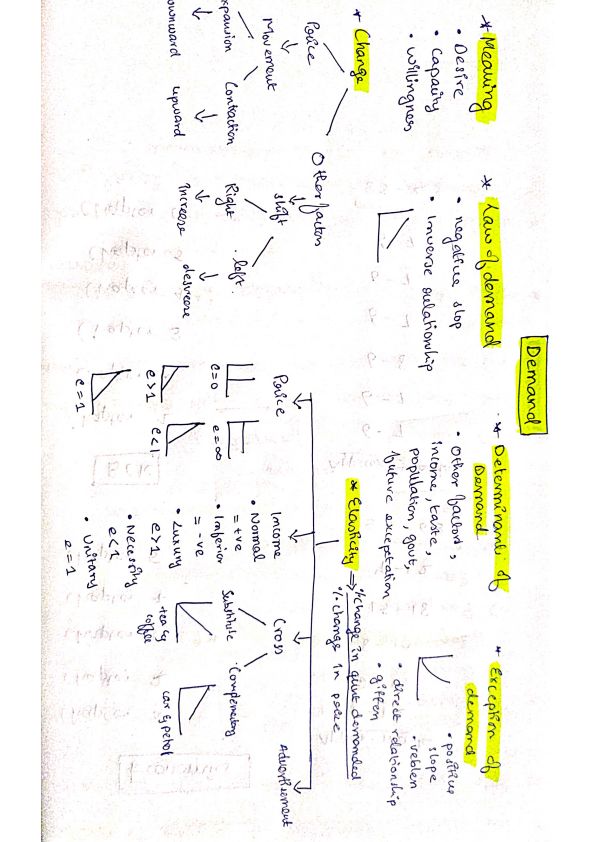 Demand
* Meaning
• Desire
• Capacity
• willingness
* Law of demand
• negative slop
• Inverse relationship
* Determinants of
Demand
• Other factors,
income, taste,
population, govt,
future expectation
* Exception of
demand
• positive
slope
• veblen
• direct relationship
• giffen
* Change
Price
↓
Movement
Expansion
↓
downward
Contraction
↓
upward
Other factors
↓
shift
Right
↓
increase
• left
↓
desreese
* Elasticity ⇒ % change in quant demanded
% change in price
Price
e=0
e=∞
e>1
e<1
e=1
Income
• Normal
= +ve
• Inferior
= -ve
• Luxury
e>1
• Necessity
e<1
• Unitary
e=1
Cross
Substitute
tea &
coffee
• Complementary
car & petrol
Advertisement